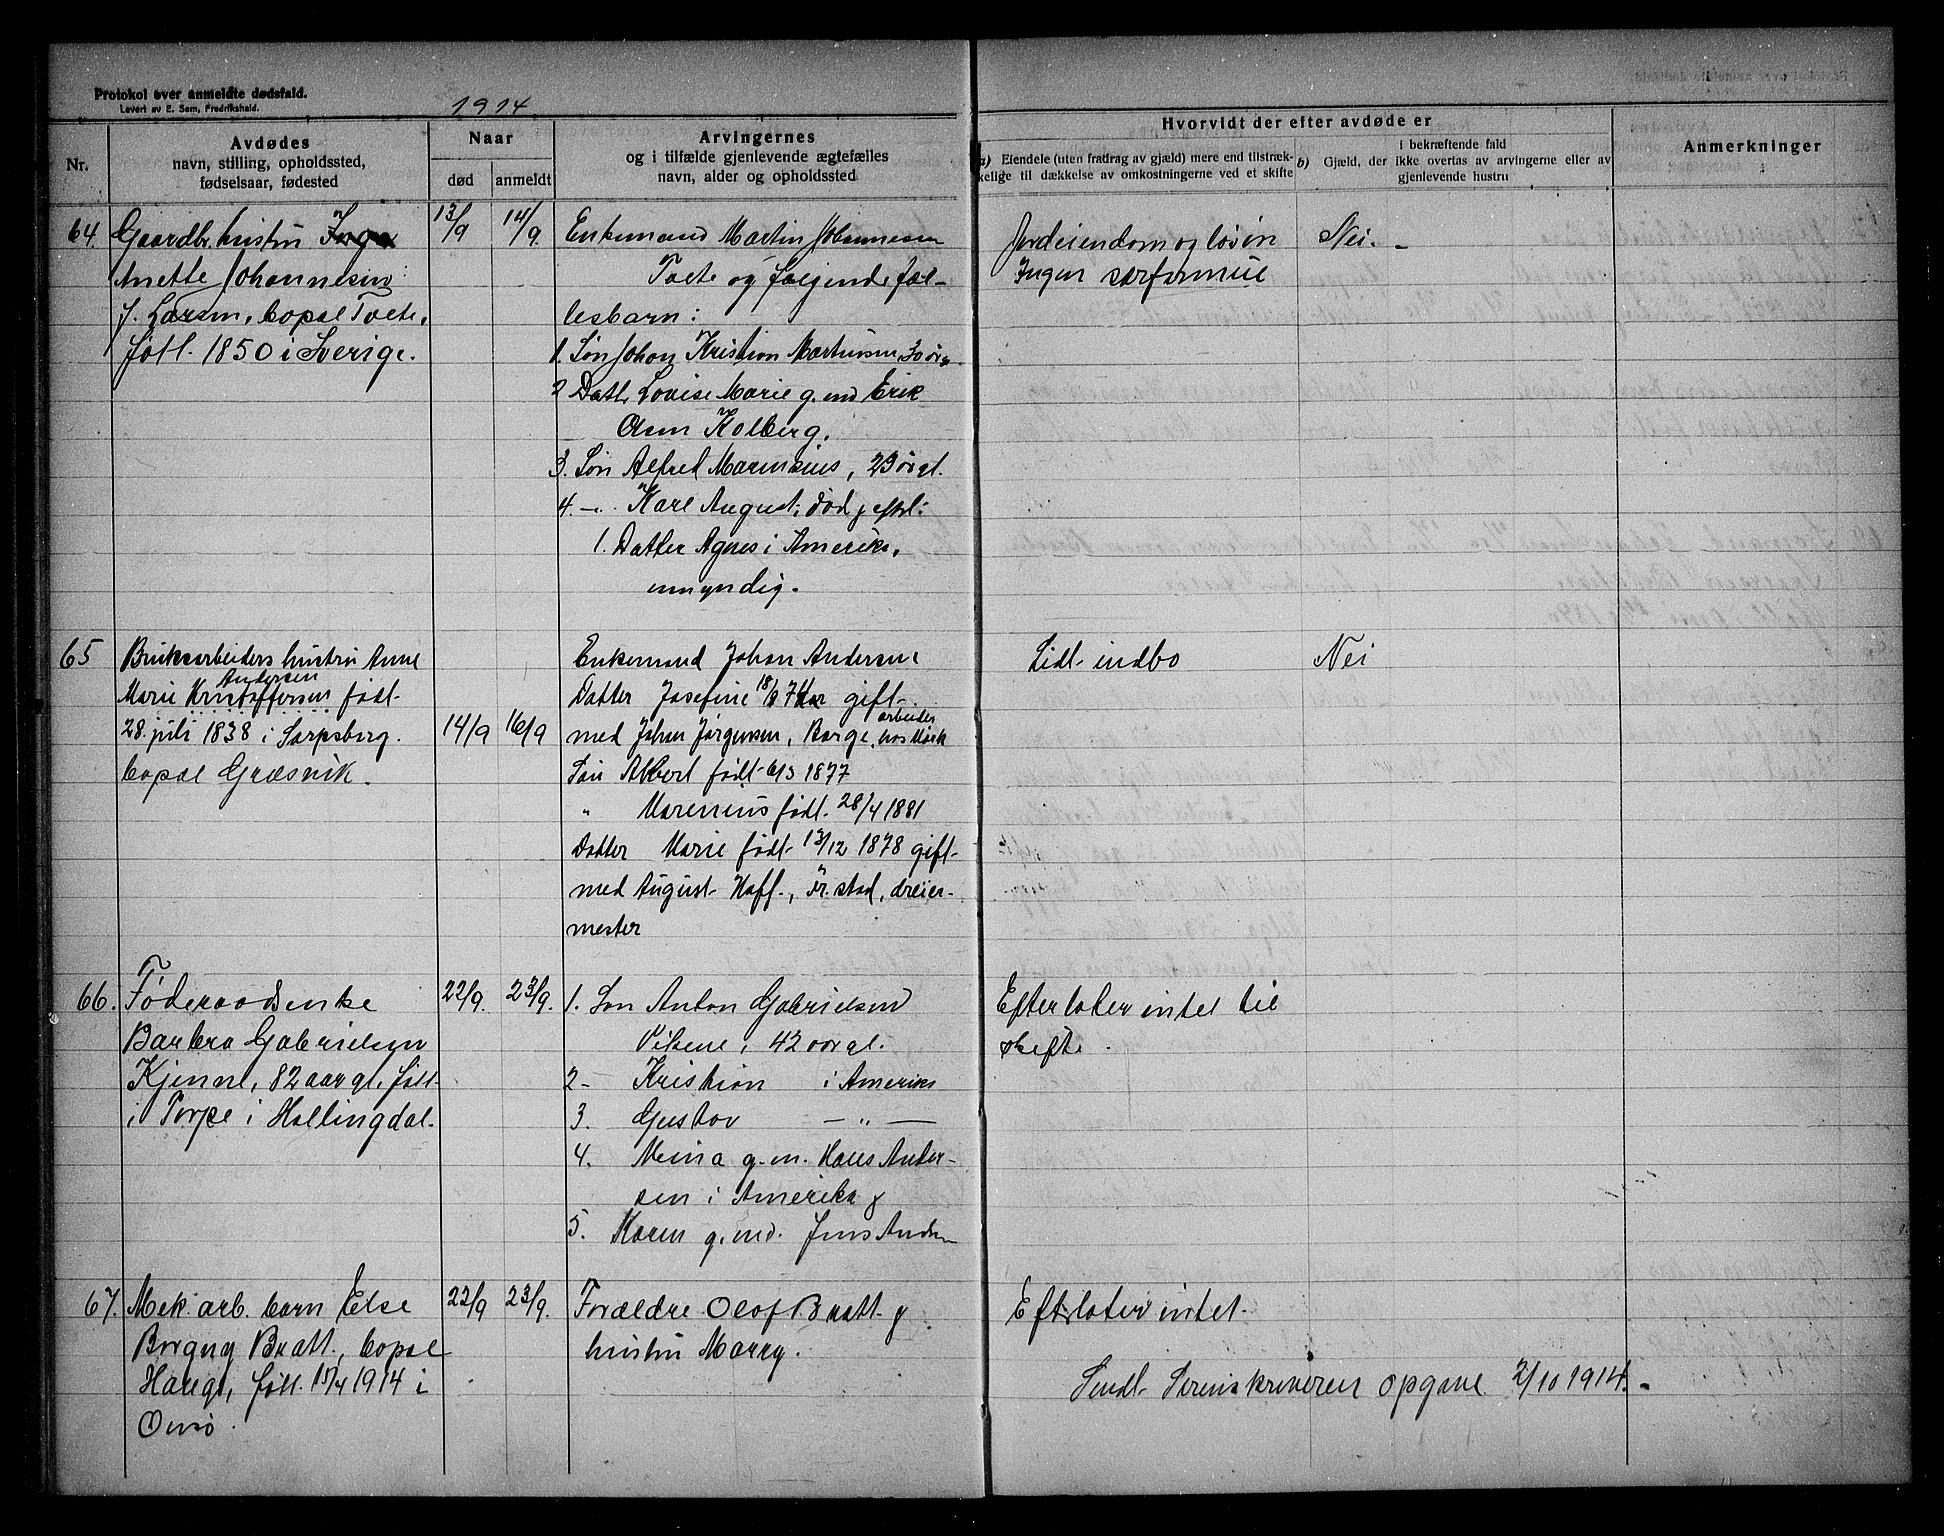 Protokol over anmeldte dødsfald.
Levert av E. Sem, Fredrikshald.
1914
Nr.
Avdødes
navn, stilling, opholdssted,
fødselsaar, fødested
Naar
død
anmeldt
Arvingernes
og i tilfælde gjenlevende ægtefælles
navn, alder og opholdssted
Hvorvidt der efter avdøde er
a) Eiendele (uten fradrag av gjæld) mere end tilstræk-
kelige til dækkelse av omkostningerne ved et skifte
b) Gjæld, der i bekræftende fald ikke overtas av arvingerne eller av gjenlevende hustru
Anmerkninger
64.
Gaardbr. hustru Inga
Anette Johannesen
f. Larsen, bopæl Tvete,
født. 1850 i Sverige.
13/9
14/9.
Enkemand Martin Johannesen
Tvete og følgende fæl-
lesbarn:
1. Søn Johan Kristian Martinsen, 30 år
2 Datt. Lovise Marie g. md Erik
Olsen Kolberg.
3. Søn Alfred Marensius, 23 år gl.
4. -"- Karl August, død, efterl:
1. Datter Agnes i Amerika,
umyndig.
Jordeiendom og løsøre
Ingen særformue
Nei. -
65
Bruksarbeiders hustru Anne
Andersen
Marie Kristoffersen født
28. juli 1838 i Sarpsborg.
bopæl Græsvik.
14/9
16/9
Enkemand Johan Andersen
Datter Josefine 18/8 74 gift
med Johan Jørgensen, Borge, arbeider hos
Søn Albert født 6/3 1877
" Marenius født 28/4 1881
Datter Marie født 13/12 1878 gift
med August Hoff., Fr.stad, dreier-
mester
Lidt indbo
Nei
66.
Føderaadsenke
Barbra Gabrielsen
Kjenne, 82 aar gl, født
i Torpe i Hallingdal.
22/9.
23/9.
1. Søn Anton Gabrielsen
Vikene, 42 aar gl.
2- Kristian i Amerika
3. Gustav — " —
4. Mina g. m. Hans Ander-
sen i Amerika &
5. Karen g. md. Jens Andersen
Efterlater intet til
skifte.
67.
Mek. arb. barn Else
Borgny Bratt, bopæl
Hauge, født. 15/4 1914 i
Onsø.
22/9
23/9.
Forældre Olof Bratt &
hustru Marry.
Efterlater intet.
Sendt Sorenskriveren opgave 2/10 1914. -